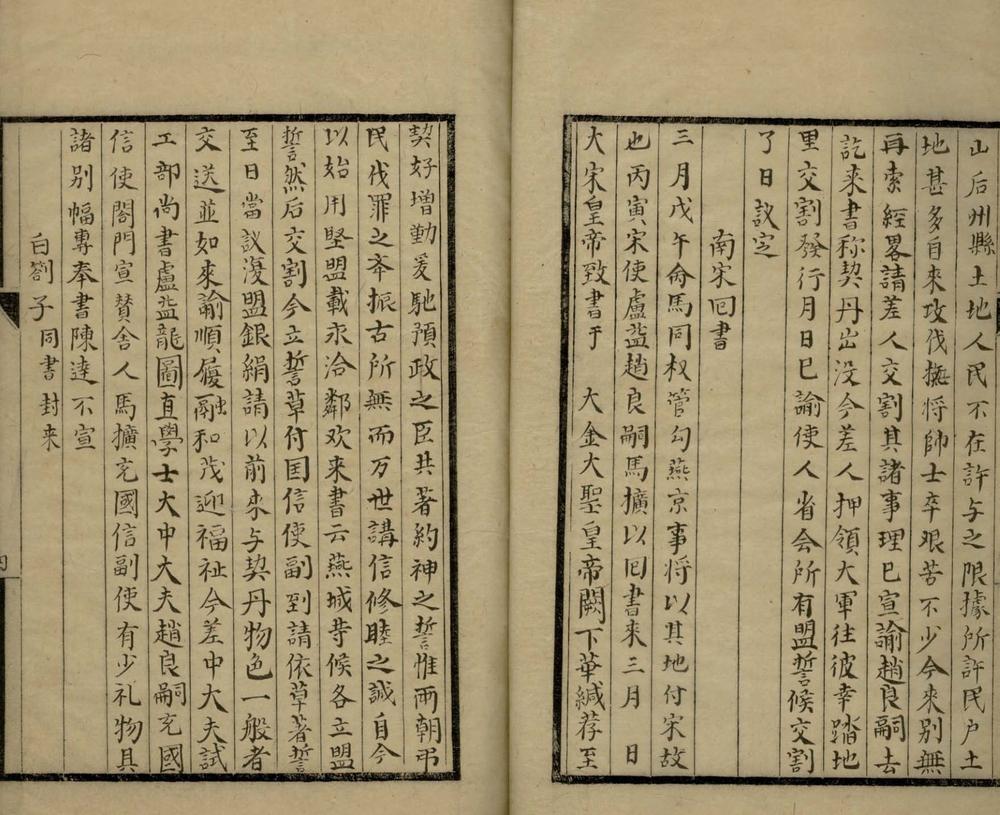 山后州縣土地人民不在許与之限據所許民户土
地甚多自来攻伐撫将帥士卒艰苦不少今来别無
再索經畧請差人交割其諸事理巳宣諭趙良嗣去
訖来書称契丹出没今差人押領大軍往彼幸踏地
里交割發行月日巳諭使人省会所有盟誓候交割
了日議定
南宋囘書
三月戊午俞馬同权管勾燕京事将以其地付宋故
也丙寅宋使盧益趙良嗣馬擴以囘書来三月 日
大宋皇帝致書于 大金大聖皇帝闕下華緘荐至
契好增勤爰馳預政之臣共著約神之誓惟两朝弔
民伐罪之夲振古所無而万世講信修睦之誠自今
以始用堅盟載永洽鄰欢来書云燕城䓁候各立盟
誓然后交割今立誓草付国信使副到請依草著誓
至日當議復盟銀絹請以前来与契丹物色一般者
交送並如来諭順履融和茂迎福祉今差中大夫試
工部尚書盧益龍圖直學士大中大夫趙良嗣充國
信使閤門宣賛舍人馬擴充國信副使有少礼物具
諸别幅専奉書陳逹不宣
白劄子同書封来